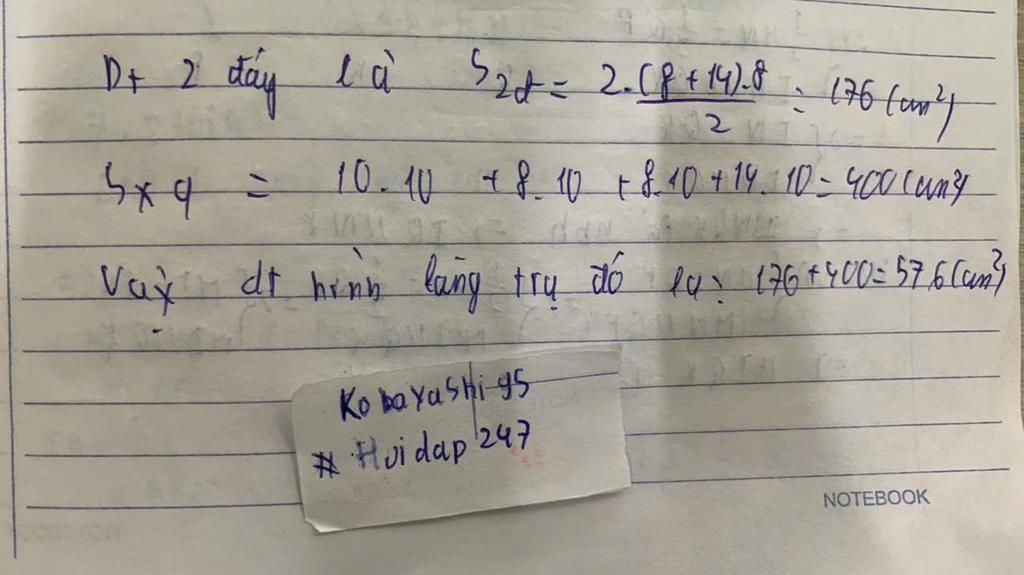 Dt 2 đáy là S2đ = 2.(8+14).8/2 = 176 (cm²)
Sxq = 10.10 + 8.10 + 8.10 + 14.10 = 400 (cm²)
Vậy dt hình lăng trụ đó là: 176+400=576 (cm²)
Kobayashi95
# Hoidap247
NOTEBOOK